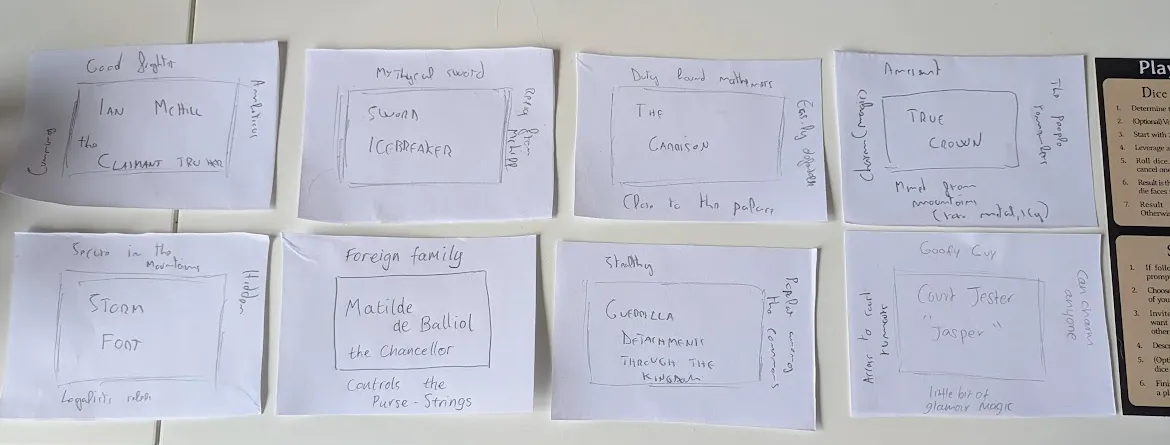 Good fighter
IAN McHILL
the
CLAIMANT
Cunning
Ambitious
Mythical sword
SWORD
ICEBREAKER
from
McHill
Duty bound
THE
GARRISON
Easily
Close to the palace
Ancient
TRUE
CROWN
Charm (
The people
remembers
from
mountains
Secure in the
mountains
STORM
FORT
Hidden
Foreign family
Matilde
de Balliol
the Chancellor
Controls the
Purse-Strings
Stealthy
GUERRILLA
DETACHMENTS
THROUGH THE
KINGDOM
Popular among
the commons
Goofy Guy
Court Jester
"Jasper"
Access to court
rumours
Can charm
anyone
little bit of
glamour magic
Play
Dice
1. Determine t
2. (Optional)
3. Start with
4. Leverage a
5. Roll dice
cancel one
6. Result is th
die faces
7. Result
Otherwi
S
1. If follo
promp
2. Choos
of you
3. Invit
want
other
4. Descr
5. (Opt
dice
6. Fini
a pl